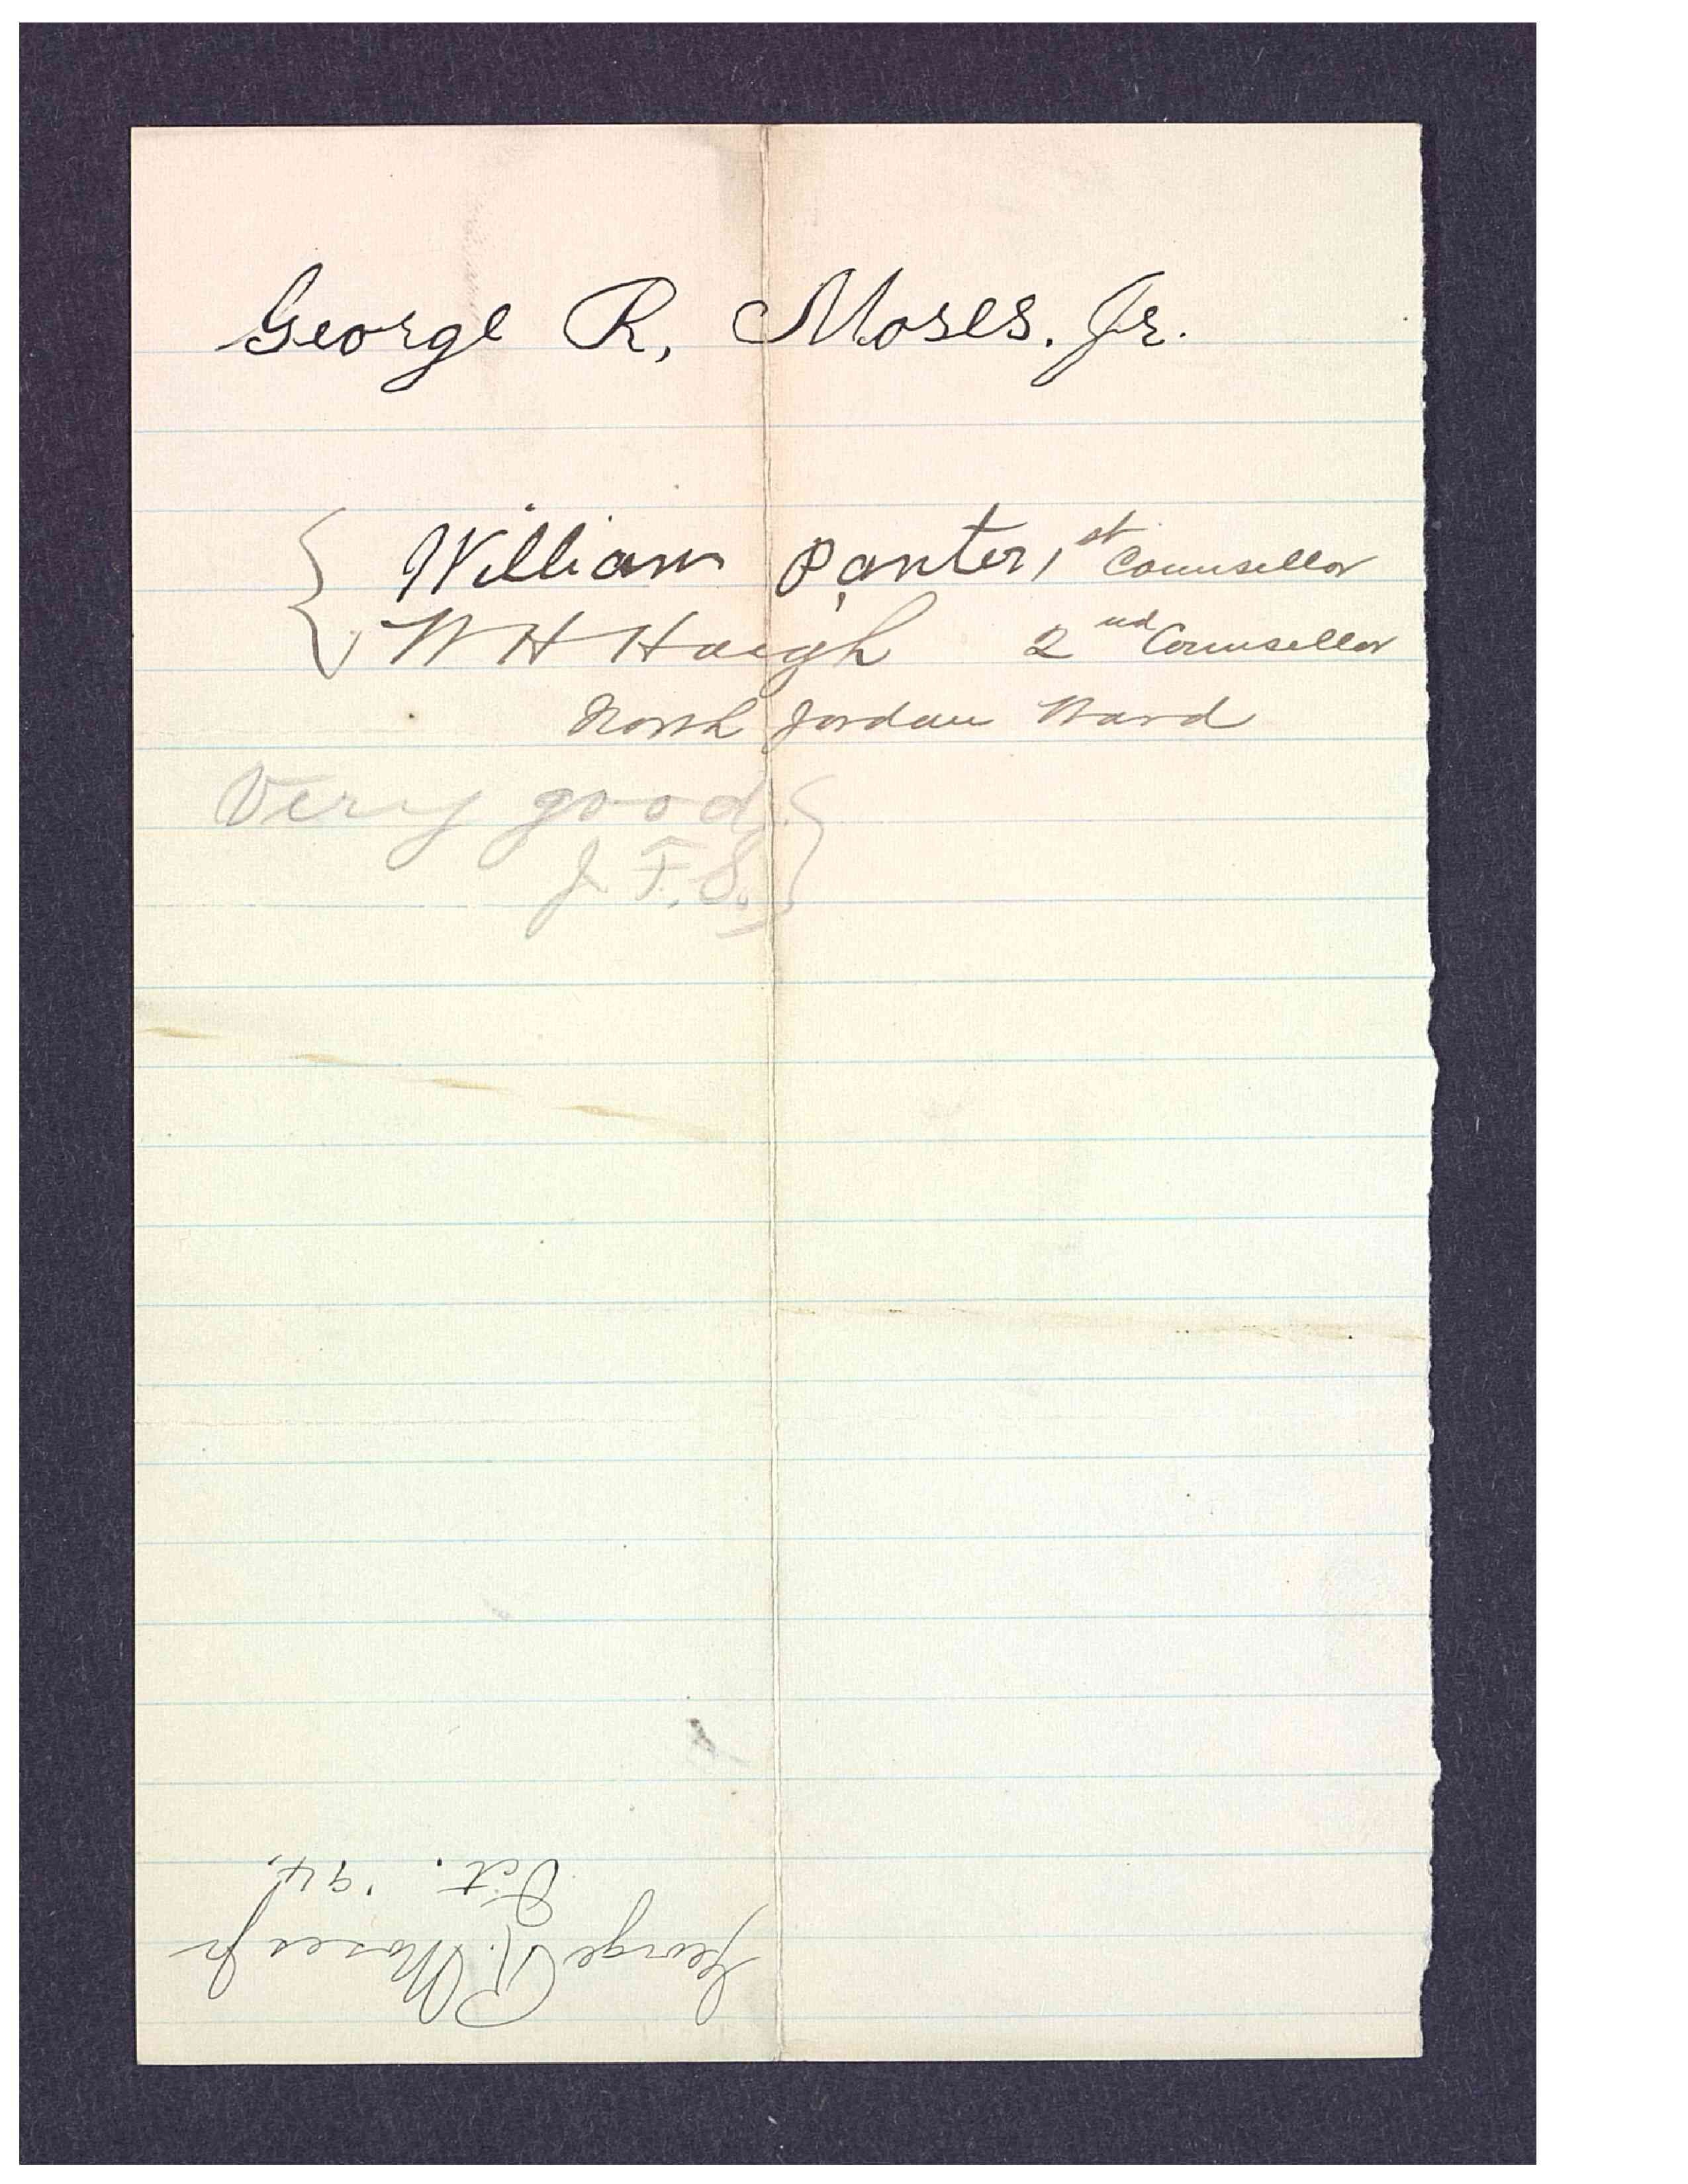 George R, Moses. Jr.
William Panter, 1st Counsellor
W H Haigh 2nd Counsellor
North Jordan Ward
Very good.
J. F. S.
George R. Moses Jr
Oct. '94.